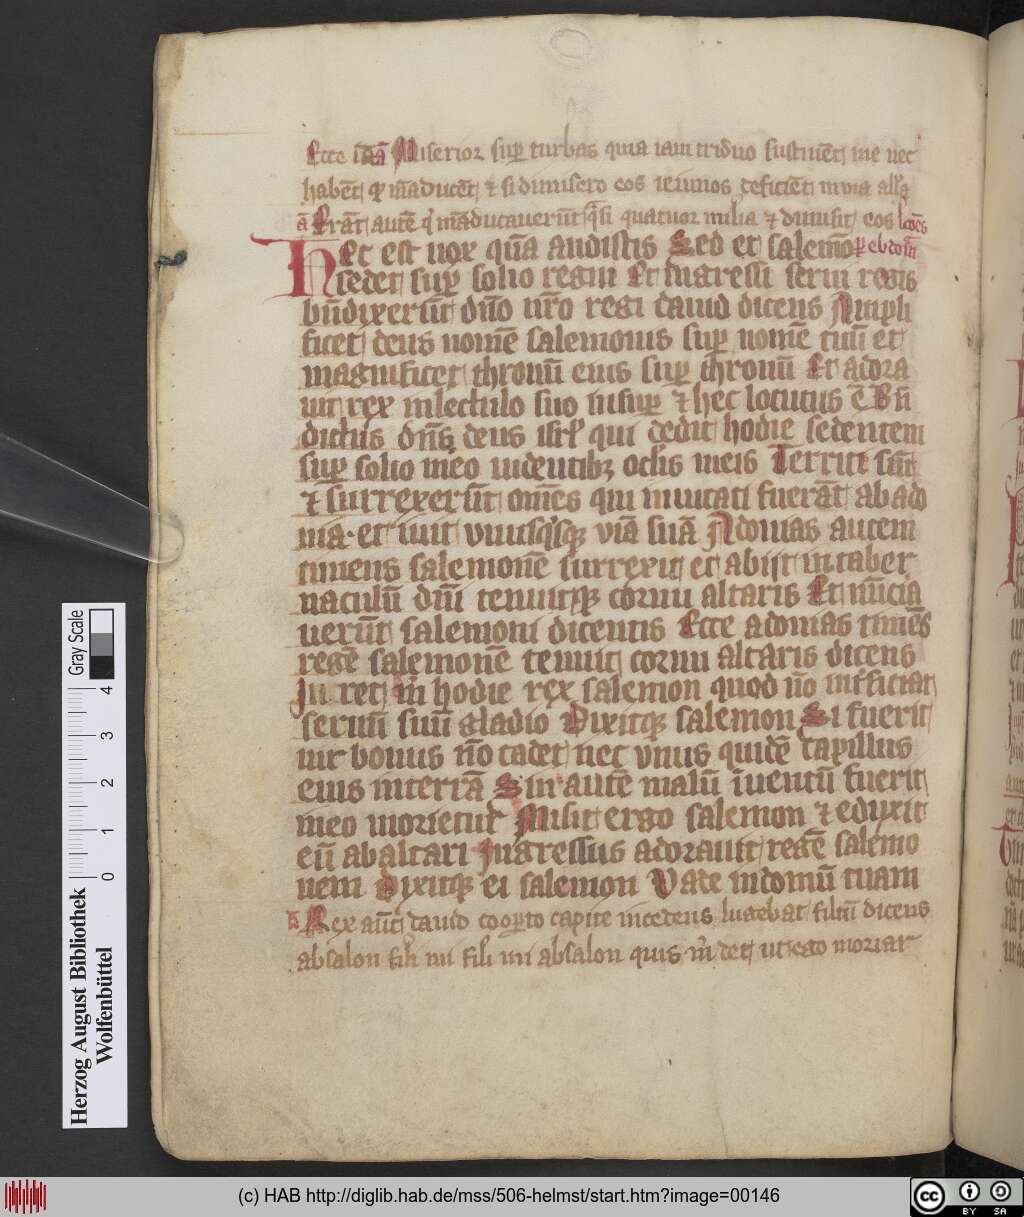 Ecce iā a̅ Miserior sup̱ turbas quia iam triduo sustinēt me nec
habēt qd̕ māducēt ⁊ si dimisero eos ieiunos deficiēt in via
a̅ Erāt autē q̕ māducauerūt q̕si quatuor milia ⁊ dimisit eos lcōēs
Hec est uox quā audistis Sed et salemō p̱ ebdomā
sedet sup̱ solio regni Et ingressi serui regis
bn̄dixerūt dn̄o nr̄o regi dauid dicens Ampli
ficet deus nomē salemonis sup̱ nomē tuū et
magnificet thronū eius sup̱ thronū Et adora
uit rex in lectulo suo insup̱ ⁊ hec locutus ē Bn̄
dictus dn̄s deus isrl̕ qui dedit hodie sedentem
sup̱ solio meo uidentibꝫ oclis meis Territi sūt
⁊ surrexerūt om̄es qui inuitati fuerāt ab ado
nia et iuit vnusq̕sqꝫ viā suā Adonias autem
timens salemonē surrexit et abijt in taber
naculū dn̄i tenuitqꝫ cornu altaris Et nūcia
uerūt salemoni dicentis Ecce adonias timēs
regē salemonē tenuit cornu altaris dicens
Iuret m̕ hodie rex salemon quod nō int̕ficiat
seruū suū gladio Dixitqꝫ salemon Si fuerit
uir bonus nō cadet nec vnus quidē capillus
eius in terrā Sin autē malū īuentū fuerit
in eo morietur Misit ergo salemon ⁊ eduxit
eū ab altari Ingressus adorauit regē salemo
nem Dixitqꝫ ei salemon Vade in domū tuam
a̅ Rex aūt dauid coop̱to capite incedens lugebat filiū dicens
absalon fili mi fili mi absalon quis m̕ det ut ego moriar
Gray Scale
0 1 2 3 4
Herzog August Bibliothek
Wolfenbüttel
(c) HAB http://diglib.hab.de/mss/506-helmst/start.htm?image=00146
cc BY SA